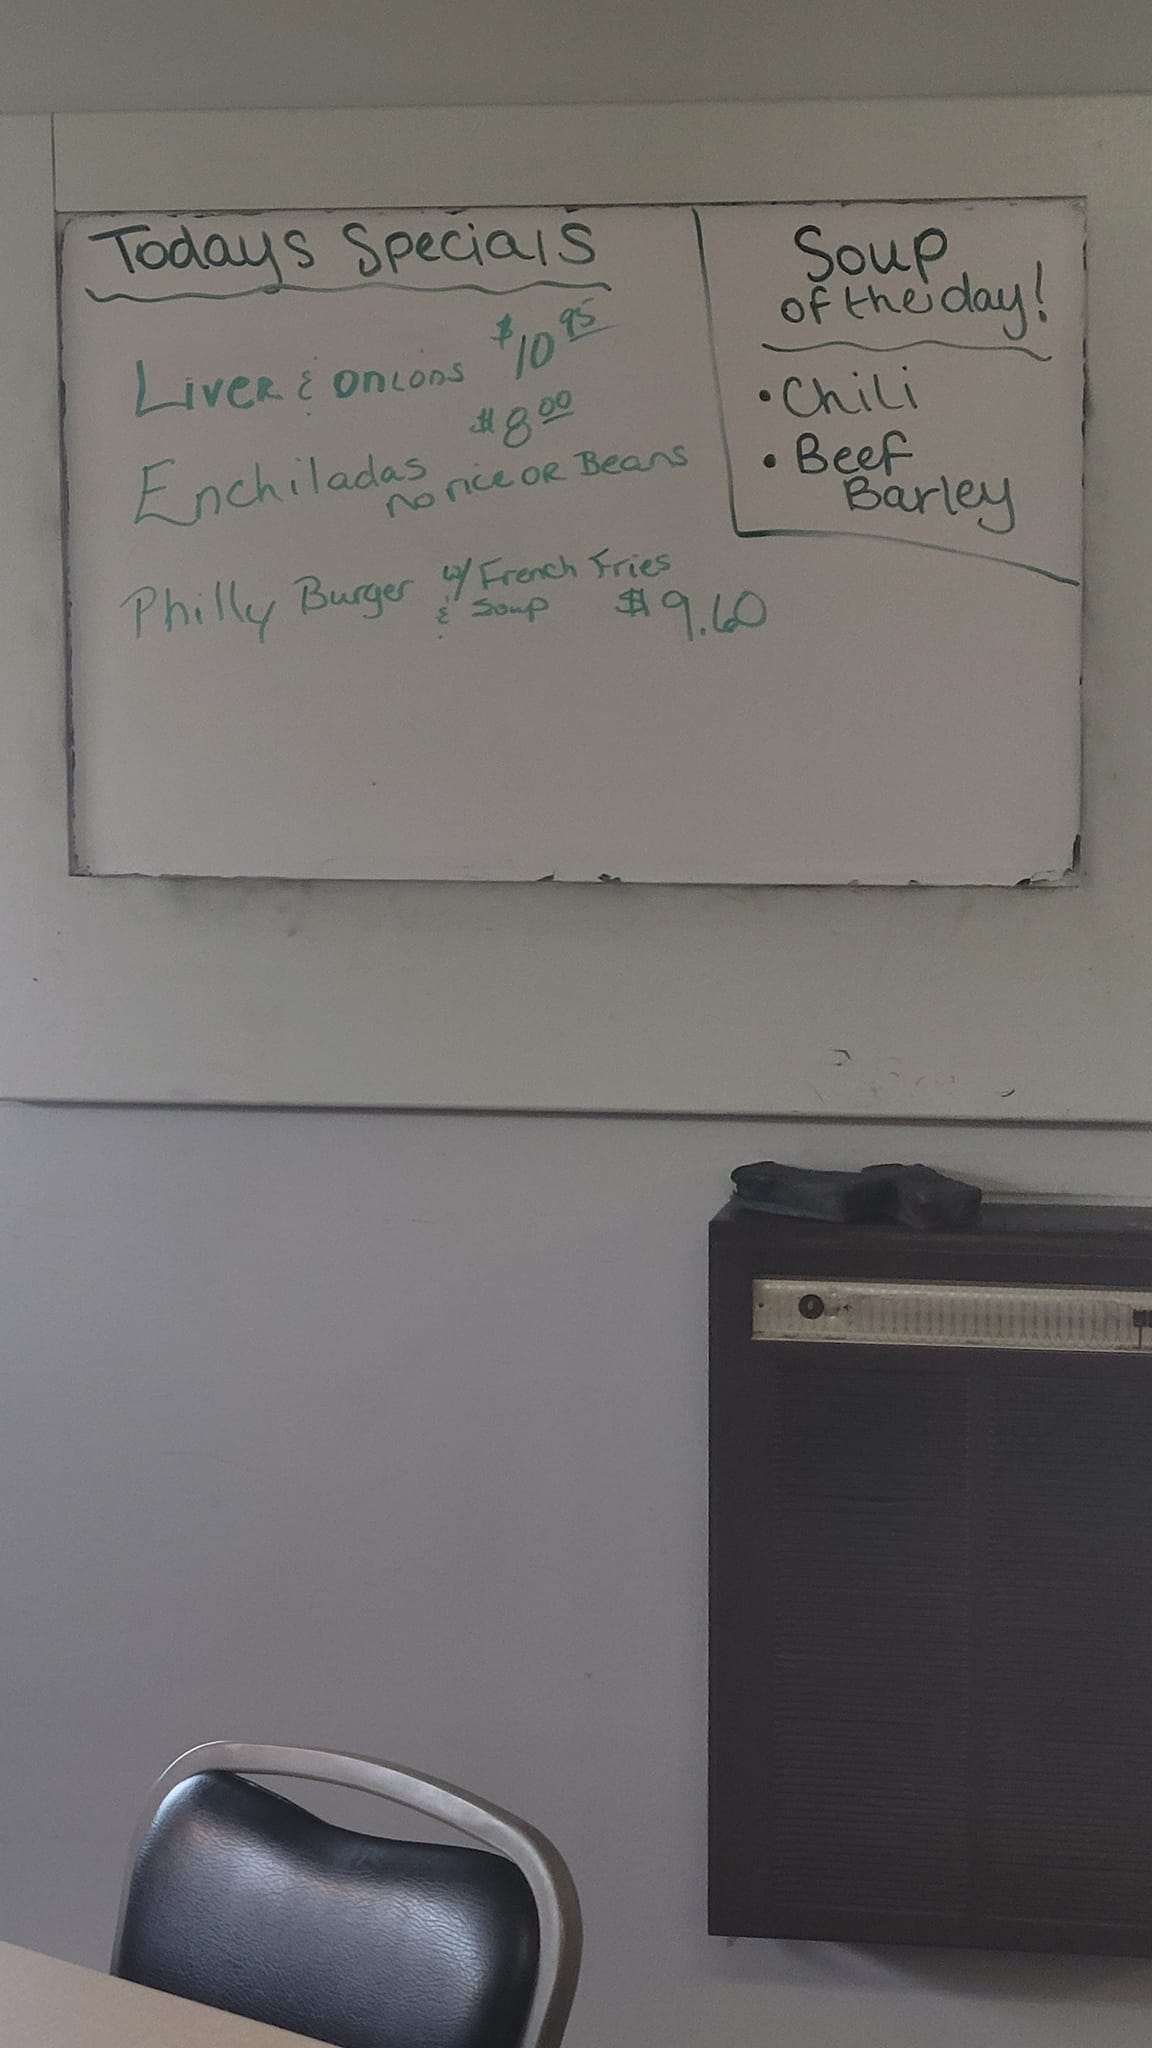 Todays Specials
Liver & Onions $10.95
Enchiladas $8.00
no rice OR Beans
Philly Burger w/ French Fries
& Soup $9.60
Soup
of the day!
• Chili
• Beef
Barley